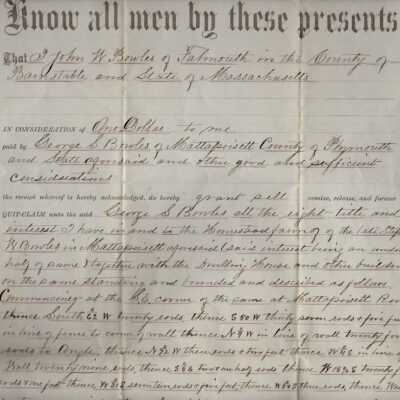 Know all men by these presents
That I John W Bowles of Falmouth in the County of
Barnstable and State of Massachusetts
IN CONSIDERATION OF One Dollar to me
paid by George S Bowles of Mattapoisett County of Plymouth
and State aforesaid and other good and sufficient
considerations
the receipt whereof is hereby acknowledged, do hereby grant sell remise, release, and forever
QUIT-CLAIM unto the said George S Bowles all the right title and
interest I have in and to the Homestead farm of the late
W Bowles in Mattapoisett aforesaid said interest being an
half of same together with the Dwelling House and other
on the same standing and bounded and described as follows
Commencing at the corner of the same at Mattapoisett
thence South 62 W twenty rods thence S 80 W thirty seven rods + five
in line of fence to corner of wall thence in line of wall twenty
rods to Angle, thence three rods + two feet thence in line of
Wall twenty nine rods, thence two + a half rods thence
rods + one foot thence seventeen rods + five feet, thence three rods, thence